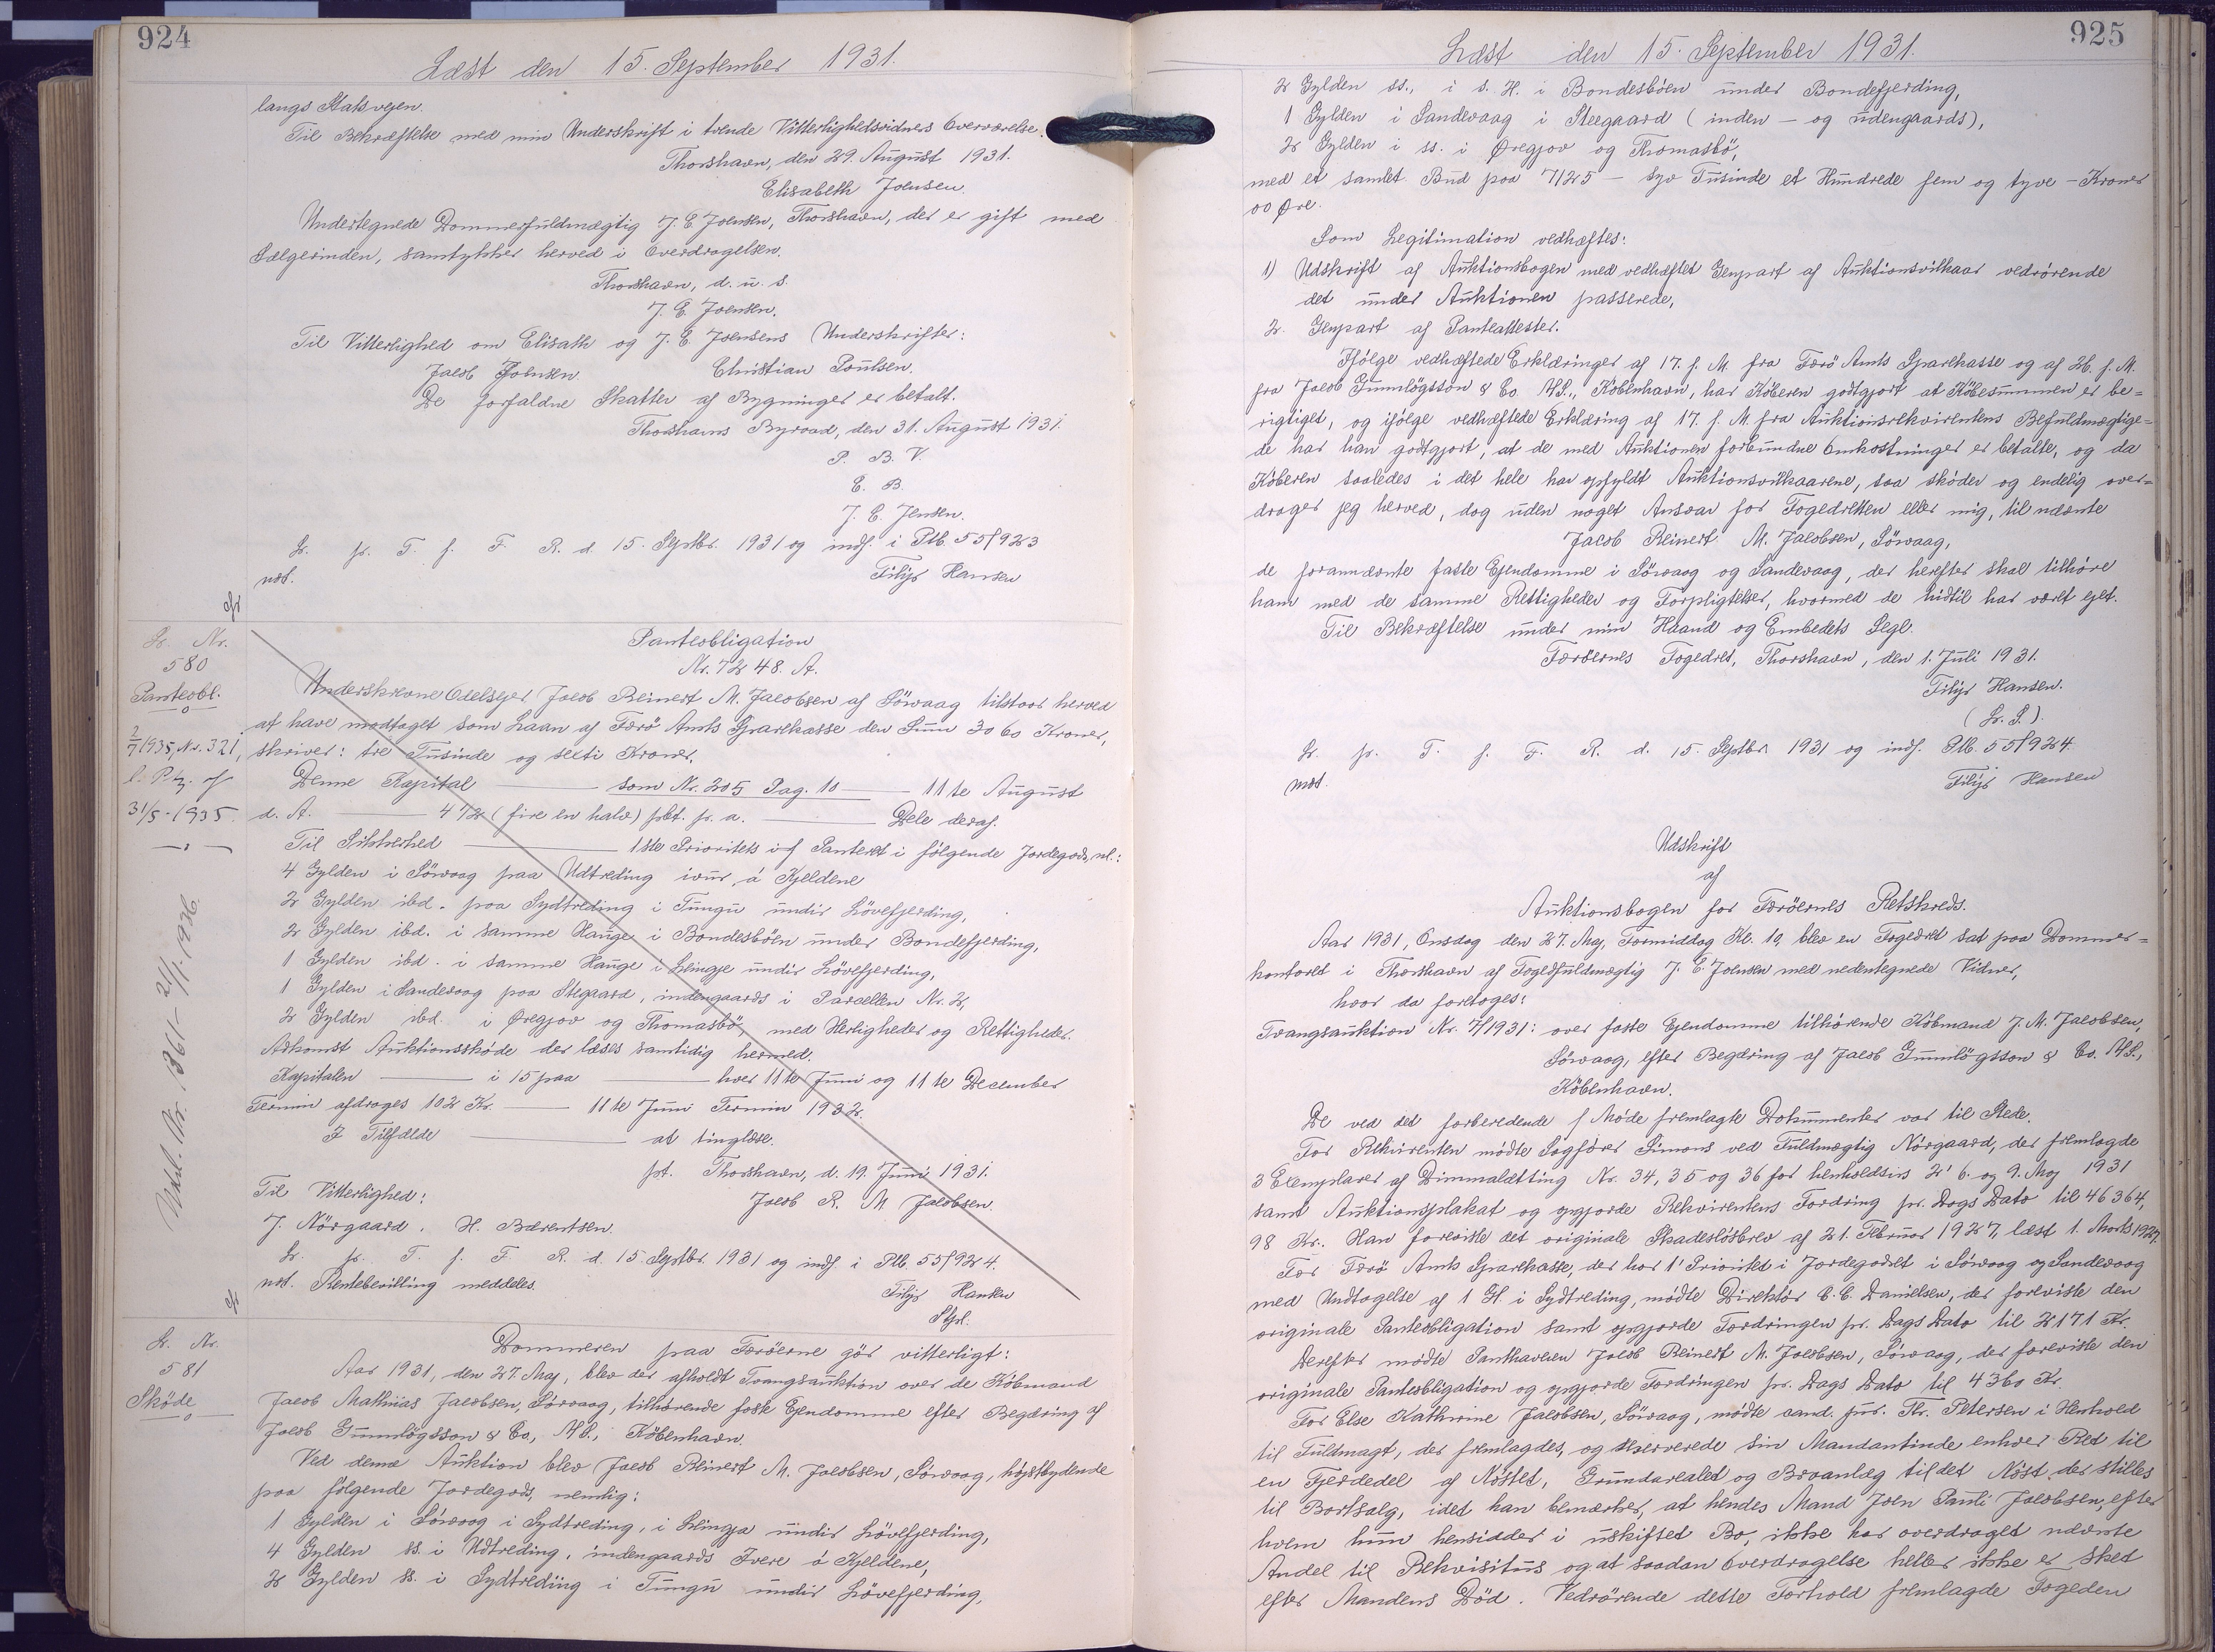 924
Læst den 15. September 1931.
langs Statsvejen.
Til Bekræftelse med min Underskrift i tvende Vitterlighedsvidners Overværelse.
Thorshavn, den 29. August 1931.
Elisabeth Joensen.
Undertegnede Dommerfuldmægtig J. E. Joensen, Thorshavn, der er gift med
Sælgerinden, samtykker herved i Overdragelsen.
Thorshavn, d. u. s.
J. E. Joensen.
Til Vitterlighed om Elisath og J. E. Joensens Underskrifter:
Jacob Joensen. Christian Poulsen.
De forfaldne Skatter af Bygninger er betalt.
Thorshavns Byraad, den 31. August 1931.
P. B. V.
E. B.
J. C. Jensen.
L. pr. T. f. F. R. d. 15. Septbr. 1931 og indf. i Ptb. 55/923
not. Filip Hansen
cfr
L. Nr.
580
Panteobl.
2/7 1935, Nr. 321,
31/5-1935.
Udsl. Nr. 1361 - 21/1-1936.
Panteobligation
Nr. 7248. A.
Underskrevne Odelsejer Jacob Reinert M. Jacobsen af Sörvaag tilstaar herved
at have modtaget som Laan af Færö Amts Sparekasse den Sum 3060 Kroner,
skriver: tre Tusinde og sexti Kroner.
Denne Kapital som Nr. 205 Pag. 10 11te August
d. A. 4 1/2 (fire en halv) pCt. pr. a. Dele deraf.
Til Sikkerhed 1ste Prioritets Panteret i følgende Jordegods, nl.:
4 Gylden i Sörvaag paa Udtreding ivur á Kjeldene
2 Gylden ibd. paa Sydtreding i Tungu undir Lövefjerding,
2 Gylden ibd. i samme Hauge i Bondesböen under Bondefjerding,
1 Gylden ibd. i samme Hauge i Lkingje undir Lövefjerding,
1 Gylden i Sandevaag paa Stegaard, indengaards i Parcellen Nr. 2,
2 Gylden ibd. i Øregjov og Thomasbö, med Herligheder og Rettigheder.
Adkomst Auktionsskøde der læses samtidig hermed.
Kapitalen i 15 paa hver 11te Juni og 11te December
Termin afdrages 102 Kr. 11te Juni Termin 1932.
I Tilfælde at tinglæse.
pt. Thorshavn, d. 19. Juni 1931.
Til Vitterlighed: Jacob R. M. Jacobsen.
J. Nörgaard. H. Bærentsen.
L. pr. T. f. F. R. d. 15. Septbr. 1931 og indf. i Ptb. 55/924.
not. Rentebevilling meddeles. Filip Hansen
Stpl.
cfr
L. Nr.
581
Skøde
Dommeren paa Færöerne gör vitterligt:
Aar 1931, den 27. Maj, blev der afholdt Tvangsauktion over de Köbmand
Jacob Mathias Jacobsen, Sörvaag, tilhørende faste Ejendomme efter Begæring af
Jacob Gunnlögsson & Co., A/S., Köbenhavn.
Ved denne Auktion blev Jacob Reinert M. Jacobsen, Sörvaag, højstbydende
paa følgende Jordegods, nemlig:
1 Gylden i Sörvaag i Sydtreding, i Lkingja undir Lövefjerding,
4 Gylden ss. i Udtreding, indengaards Ivere á Kjeldene,
2 Gylden ss. i Sydtreding i Tungu undir Lövefjerding,
925
Læst den 15. September 1931.
2 Gylden ss., i s. H. i Bondesböen under Bondefjerding,
1 Gylden i Sandevaag i Steegaard (inden - og udengaards),
2 Gylden i ss. i Øregjov og Thomasbö,
med et samlet Bud paa 7125 - syv Tusinde et Hundrede fem og tyve - Kroner
00 Øre.
Som Legitimation vedhæftes:
1) Udskrift af Auktionsbogen med vedhæftet Genpart af Auktionsvilkaar vedrörende
det under Auktionen passerede,
2. Genpart af Panteattester.
Ifölge vedhæftede Erklæringer af 17. f. M. fra Færö Amts Sparekasse og af 26. f. M.
fra Jacob Gunnlögsson & Co. A/S., Köbenhavn, har Köberen godtgjort at Köbesummen er be=
rigtiget, og ifölge vedhæftede Erklæring af 17. f. M. fra Auktionsrekvirentens Befuldmægtige=
de har han godtgjort, at de med Auktionen forbundne Omkostninger er betalte, og da
Köberen saaledes i det hele har opfyldt Auktionsvilkaarene, saa sköder og endelig over=
drager jeg herved, dog uden noget Ansvar for Fogedretten eller mig, til nævnte
Jacob Reinert M. Jacobsen, Sörvaag,
de forannævnte faste Ejendomme i Sörvaag og Sandevaag, der herefter skal tilhöre
ham med de samme Rettigheder og Forpligtelser, hvormed de hidtil har været ejet.
Til Bekræftelse under min Haand og Embedets Segl.
Færöernes Fogedret, Thorshavn, den 1. Juli 1931.
Filip Hansen.
(L. S.)
L. pr. T. f. F. R. d. 15. Septbr. 1931 og indf. Ptb. 55/924.
not. Filip Hansen
Udskrift
af
Auktionsbogen for Færöernes Retskreds.
Aar 1931, Onsdag den 27. Maj, Formiddag Kl. 10, blev en Fogedret sat paa Dommer=
kontoret i Thorshavn af Fogedfuldmægtig J. E. Joensen med nedentegnede Vidner,
hvor da foretoges:
Tvangsauktion Nr. 7/1931: over faste Ejendomme tilhörende Köbmand J. M. Jacobsen,
Sörvaag, efter Begæring af Jacob Gunnlögsson & Co. A/S.,
Köbenhavn.
De ved det forberedende Möde fremlagte Dokumenter var til Stede.
For Rekvirenten mödte Sagförer Simons ved Fuldmægtig Nörgaard, der fremlagde
3 Exemplarer af Dimmalætting Nr. 34, 35 og 36 for henholdsvis 2' 6. og 9. Maj 1931
samt Auktionsplakat og opgjorde Rekvirentens Fordring pr. Dags Dato til 46364,
98 Kr. Han foreviste det originale Skadeslösbrev af 21. Februar 1927, læst 1. Marts 1927.
For Færö Amts Sparekasse, der har 1' Prioritet i Jordegodset i Sörvaag og Sandevaag
med Undtagelse af 1 Gl. i Sydtreding, mödte Direktör C. C. Danielsen, der foreviste den
originale Panteobligation samt opgjorde Fordringen pr. Dags Dato til 2171 Kr.
Derefter mödte Panthaveren Jacob Reinert M. Jacobsen, Sörvaag, der foreviste den
originale Panteobligation og opgjorde Fordringen pr. Dags Dato til 4360 Kr.
For Else Kathrine Jacobsen, Sörvaag, mödte cand. jur. Kr. Petersen i Henhold
til Fuldmagt, der fremlagdes, og reserverede sin Mandantinde enhver Ret til
en Fjerdedel af Nöstet, Grundarealet og Broanlæg til det Nöst, der stilles
til Bortsalg, idet han bemærker, at hendes Mand Joen Pauli Jacobsen, efter
hvem hun hensidder i uskiftet Bo, ikke har overdraget nævnte
Andel til Rekvisitus og at saadan Overdragelse heller ikke er sket
efter Mandens Död. Vedrörende dette Forhold fremlagde Fogeden